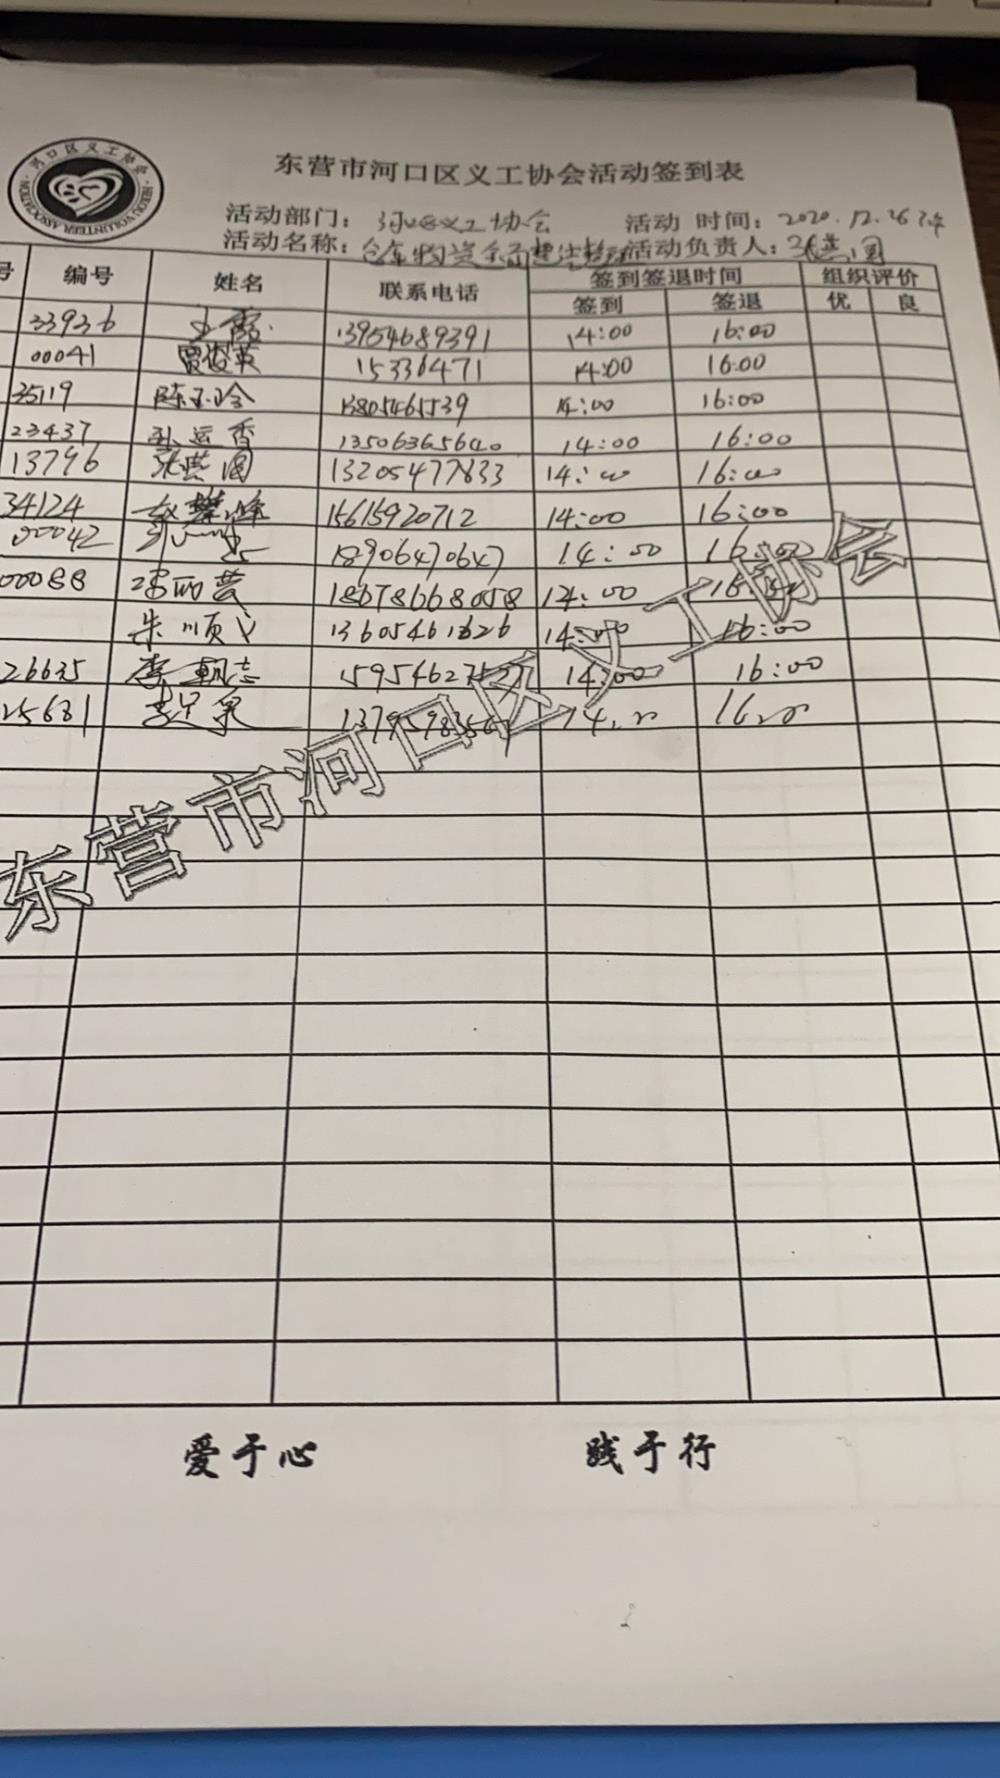 东营市河口区义工协会活动签到表
河口区义工协会
HEKOU VOLUNTEER ASSOCIATION
活动部门： 河口区义工协会 活动 时间：2020.12.26
活动名称：仓库物资 活动负责人：张燕国
号 编号 姓名 联系电话 签到签退时间 组织评价
签到 签退 优 良
33936 王霞 13954689391 14:00 16:00
00041 曾俊英 15336471 14:00 16:00
35119 陈玉玲 13805461539 14:00 16:00
23437 孙运香 13506365640 14:00 16:00
13796 张燕国 13205477833 14:00 16:00
34124 15615920712 14:00 16:00
00042 18906470647 14:00 16:00
00088 18678668058 14:00 16:00
朱顺义 13605461626 14:00 16:00
26635 李朝志 1595462 14:00 16:00
25681 14:00 16:00
东营市河口区义工协会
爱于心 践于行